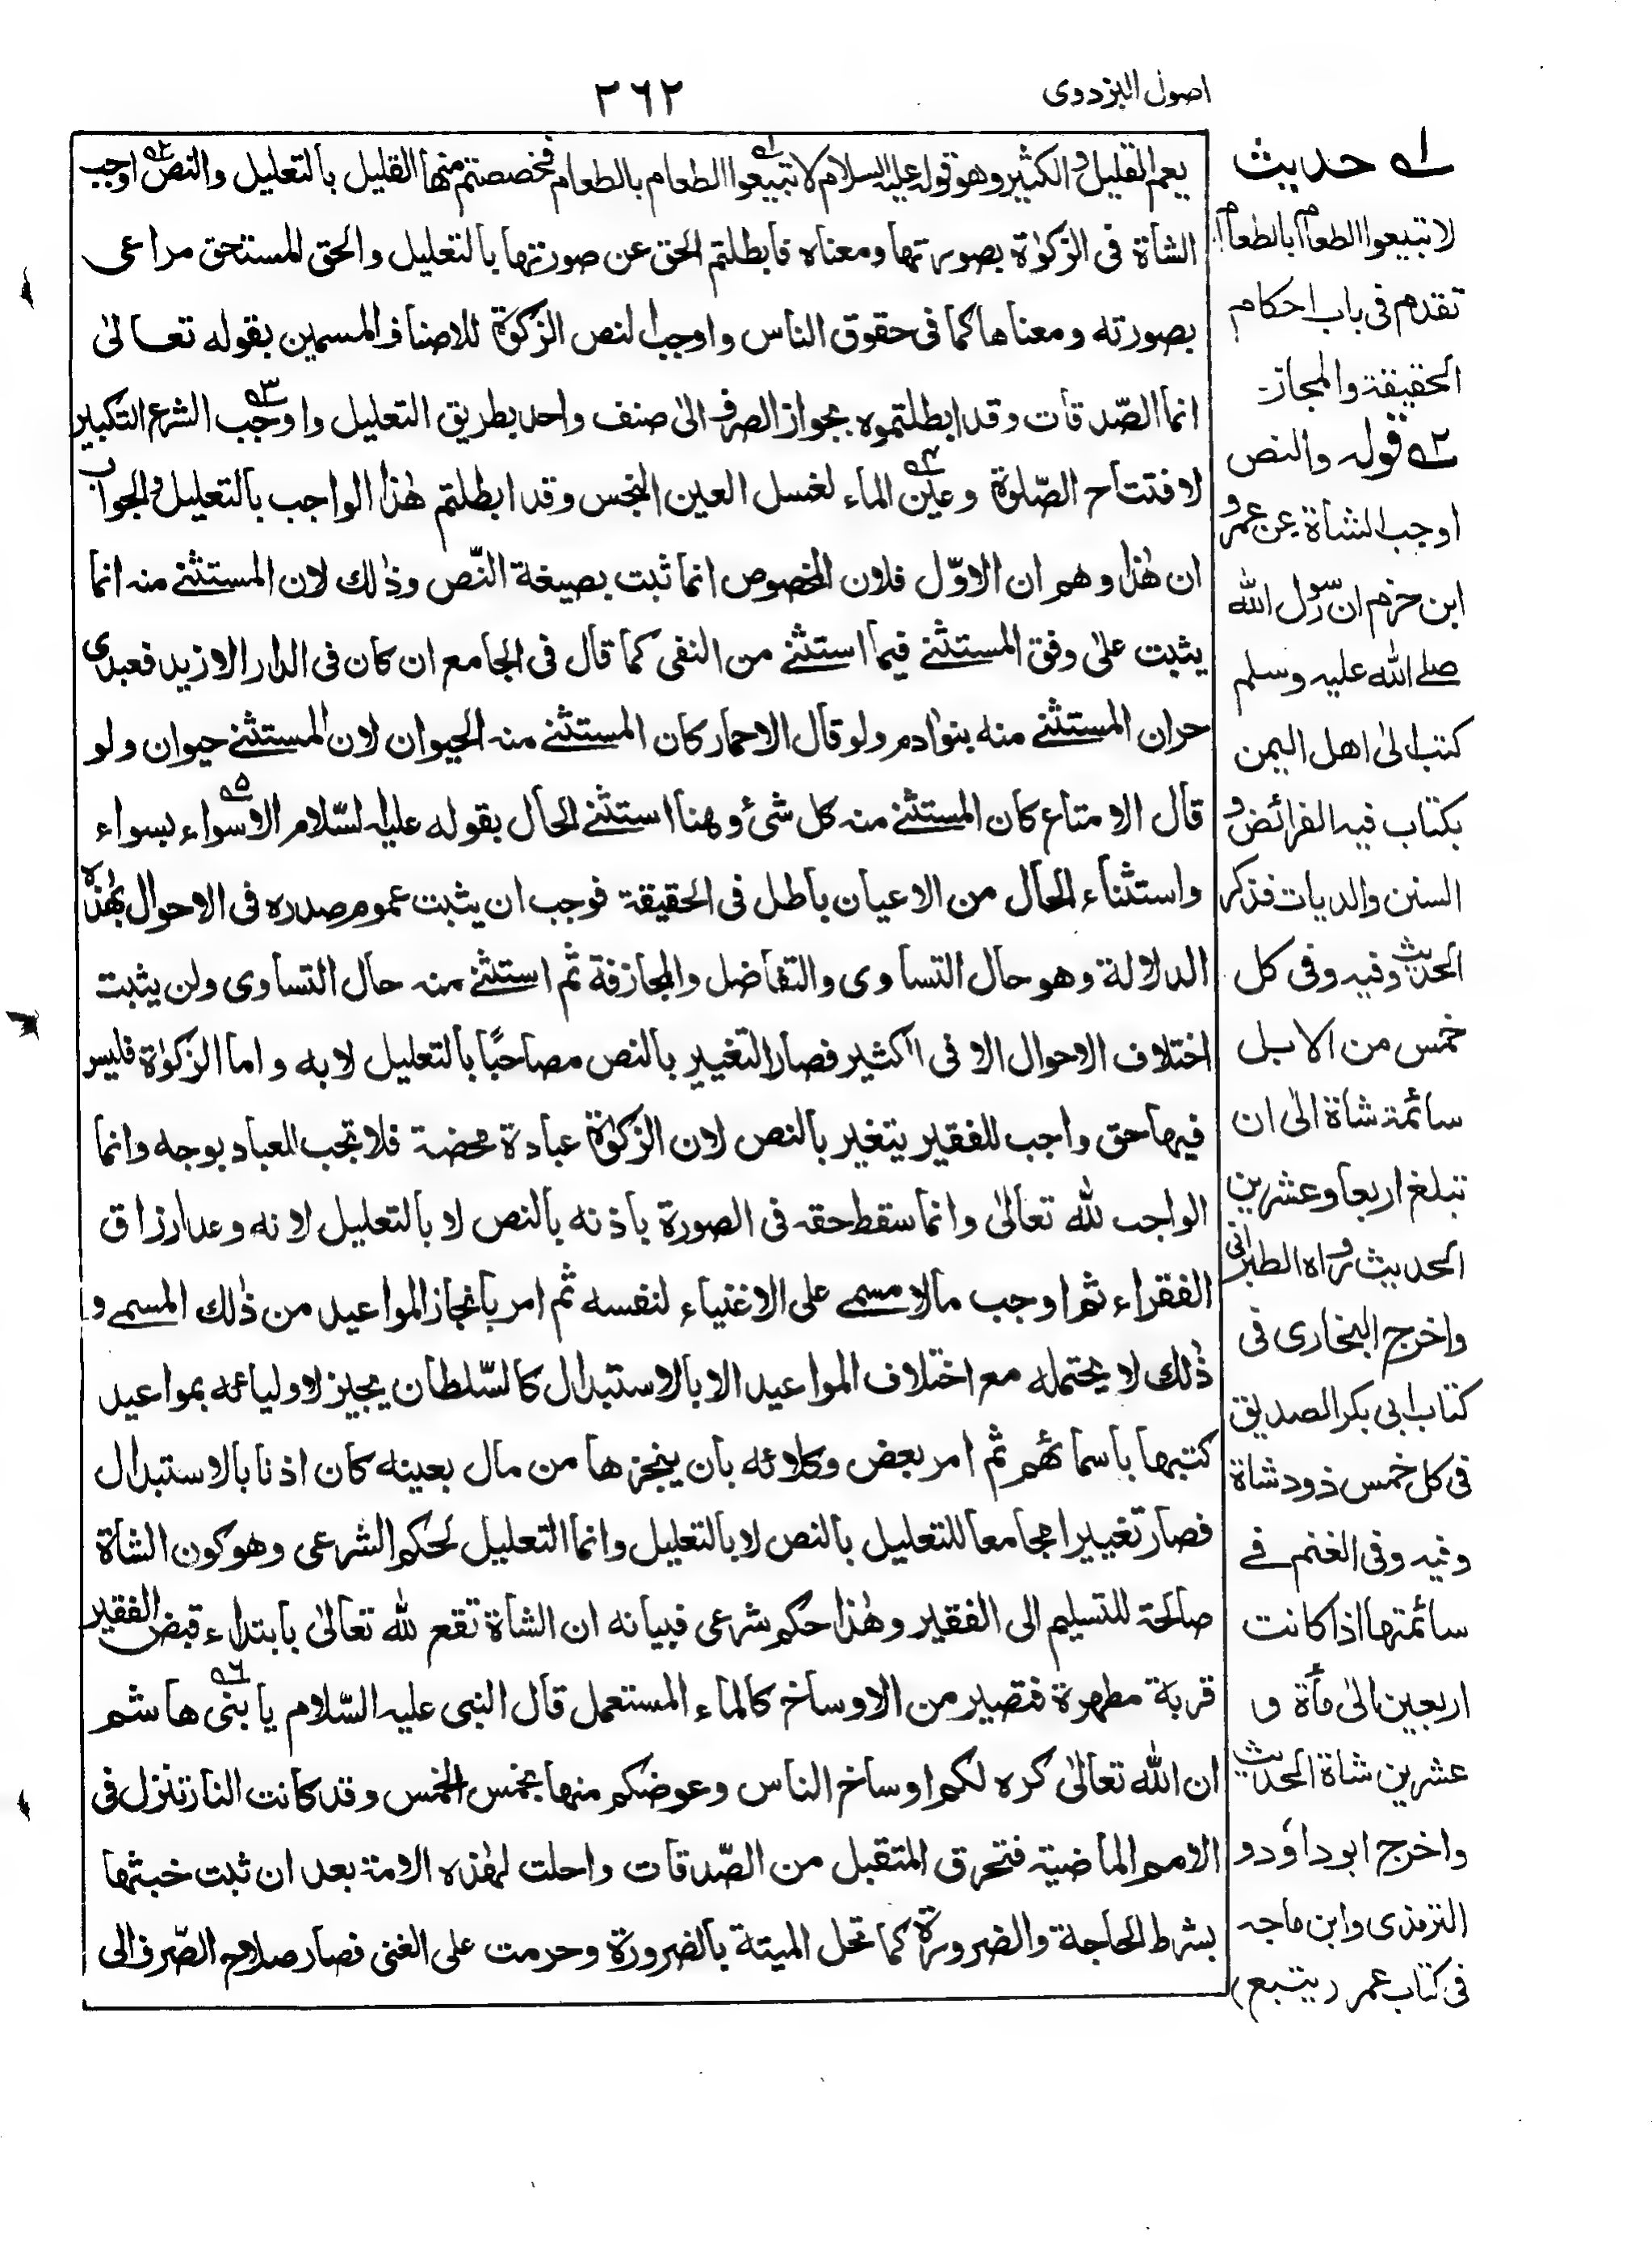 اصول البزدوی
٢٦٢
يعم القليل والكثير وهو قوله عليه السلام لا تبيعوا الطعام بالطعام فخصصتم منها القليل بالتعليل والنص اوجب
الشاة فی الزكوٰة بصورتها ومعناه فابطلتم الحق عن صورتها بالتعليل والحق للمستحق مراعی
بصورته ومعناها كما فی حقوق الناس واوجب النص الزكوٰة للاصناف المسمين بقوله تعالٰی
انما الصّدقات وقد ابطلتموه بجواز الصرف الی صنف واحد بطريق التعليل واوجب الشرع التكبير
لافتتاح الصّلوٰة وعين الماء لغسل العين النجس وقد ابطلتم هٰذا الواجب بالتعليل والجواب
ان هٰذا وهم ان الاوّل فلان الخصوص انما ثبت بصيغة النّص وذٰلك لان المستثنے منه انما
يثبت علی وفق المستثنے فيما استثنے من النفی كما قال فی الجامع ان كان فی الدار الا زيد فعبدی
حر ان المستثنے منه بنوٰادم ولو قال الا حمار كان المستثنے منه الحيوان لان المستثنے حيوان ولو
قال الا متاع كان المستثنے منه كل شئ وهنا استثنے الحال بقوله عليه السّلام الا سواء بسواء
واستثناء الحال من الاعيان باطل فی الحقيقة فوجب ان يثبت عموم صدره فی الاحوال بهٰذه
الدلالة وهو حال التساوی والتفاضل والمجازفة ثم استثنے منه حال التساوی ولن يثبت
اختلاف الاحوال الا فی الكثير فصار التغيير بالنص مصاحبًا بالتعليل لا به واما الزكوٰة فليس
فيها حق واجب للفقير يتغير بالنص لان الزكوٰة عبادة محضة فلا تجب للعباد بوجه وانما
الواجب لله تعالٰی وانما سقط حقه فی الصورة باذنه بالنص لا بالتعليل لانه وعد ارزاق
الفقراء ثم اوجب مالا مسمے علی الاغنياء لنفسه ثم امر بانجاز المواعيد من ذٰلك المسمے و
ذٰلك لا يحتمله مع اختلاف المواعيد الا بالاستبدال كالسّلطان يجيز لاوليائه بمواعيد
كتبها باسمائهم ثم امر بعض وكلائه بان ينجزها من مال بعينه كان اذنا بالاستبدال
فصار تغييرا مجامعا للتعليل بالنص لا بالتعليل وانما التعليل لحكم الشرعی وهو كون الشاة
صالحة للتسليم الی الفقير وهٰذا حكم شرعی فبيانه ان الشاة تقع لله تعالٰی بابتداء قبض الفقير
قربة مطهرة فتصير من الاوساخ كالماء المستعمل قال النبی عليه السّلام يا بنی هاشم
ان الله تعالٰی كره لكم اوساخ الناس وعوضكم منها بخمس الخمس وقد كانت النار تنزل فی
الامم الماضية فتحرق المتقبل من الصّدقات واحلت لهٰذه الامة بعد ان ثبت خبثها
بشرط الحاجة والضرورة كما تحل الميتة بالضرورة وحرمت علی الغنی فصار صلاح الصّرف الی
١ے حديث
لا تبيعوا الطعام بالطعام
تقدم فی باب احكام
الحقيقة والمجاز۔
٢ے قوله والنص
اوجب الشاة عن عمرو
ابن حزم ان رسول الله
صلے الله عليه وسلم
كتب الیٰ اهل اليمن
بكتاب فيه الفرائض و
السنن والديات فذكر
الحديث وفيه وفی كل
خمس من الابل
سائمة شاة الیٰ ان
تبلغ اربعا وعشرين
الحديث رواه الطبرانی
واخرج البخاری فی
كتاب ابی بكر الصديق
فی كل خمس ذود شاة
وفيه وفی الغنم فے
سائمتها اذا كانت
اربعين الیٰ مأة و
عشرين شاة الحديث
واخرج ابو داؤد و
الترمذی وابن ماجه
فی كتاب عمر (يتبع)